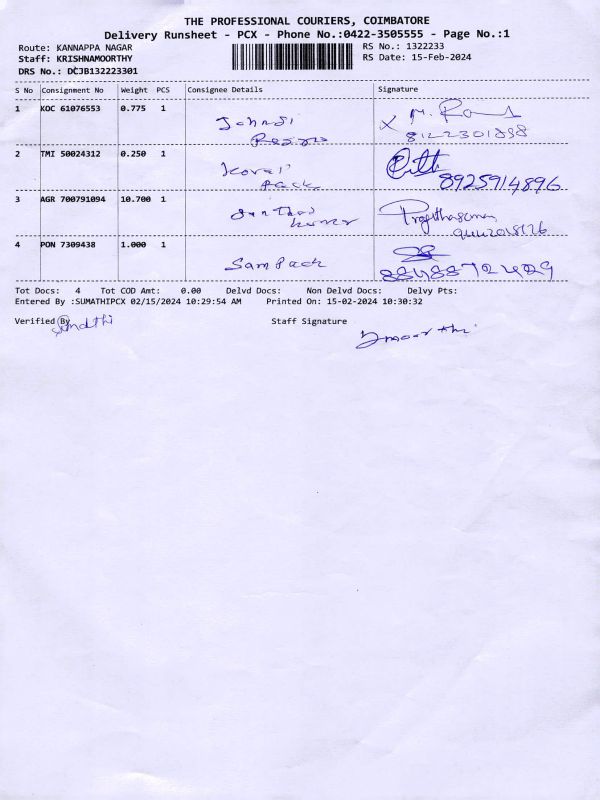 THE PROFESSIONAL COURIERS, COIMBATORE
Delivery Runsheet - PCX - Phone No.:0422-3505555 - Page No.:1
Route: KANNAPPA NAGAR
RS No.: 1322233
Staff: KRISHNAMOORTHY
RS Date: 15-Feb-2024
DRS No.: DCJB132223301
S No Consignment No Weight PCS Consignee Details Signature
1 KOC 61076553 0.775 1
8122301898
2 TMI 50024312 0.250 1 Kovai Pack
8925914896
3 AGR 700791094 10.700 1 Santhos Kumar
4 PON 7309438 1.000 1 Sam Pack
Tot Docs: 4 Tot COD Amt: 0.00 Delvd Docs: Non Delvd Docs: Delvy Pts:
Entered By :SUMATHIPCX 02/15/2024 10:29:54 AM Printed On: 15-02-2024 10:30:32
Verified By Sumathi Staff Signature